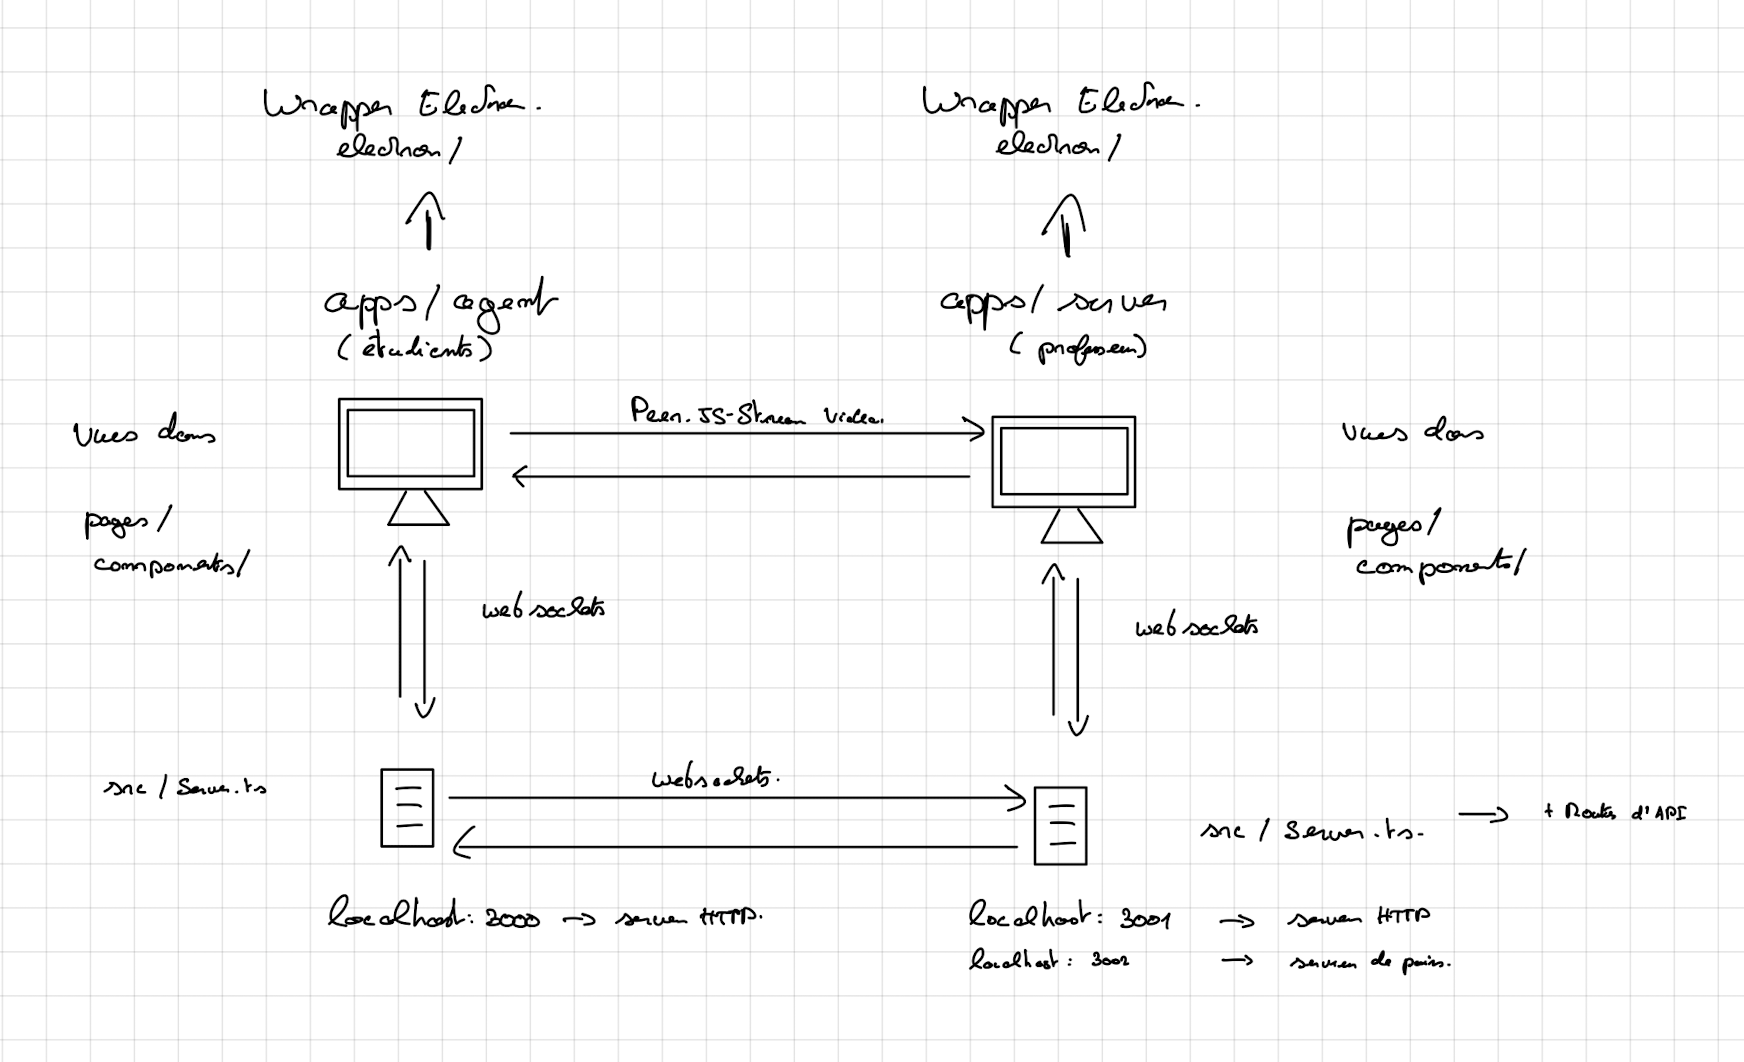 Wrapper Electron.
electron/
Wrapper Electron.
electron/
apps/agent
(étudients)
apps/server
(professeur)
Vues dans
pages/
components/
Peer.JS-Stream Video.
Vues dans
pages/
components/
websockets
websockets
src/Server.ts
websockets.
src/Server.ts.
+ Routes d'API
localhost:3000 → serveur HTTP.
localhost:3001 → serveur HTTP
localhost:3002 → serveur de pairs.